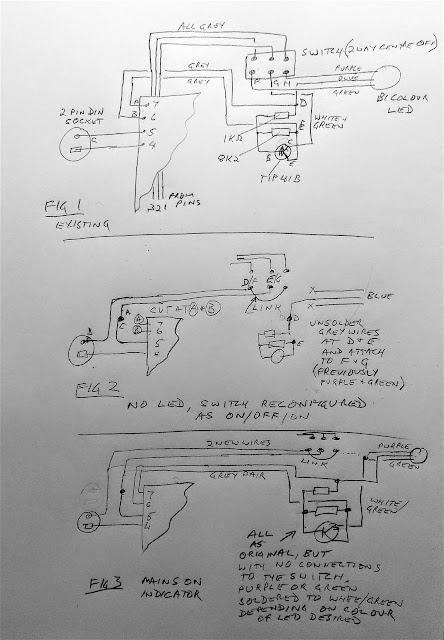 ALL GREY
SWITCH (2 WAY CENTRE OFF)
GREY
GREY
F G H
PURPLE
BLUE
GREEN
BI COLOUR
LED
2 PIN DIN
SOCKET
A 7
B 6
5
4
C
D
E
WHITE +
GREEN
1KΩ
8K2
C
B
E
TIP 41B
FROM
PINS
321
FIG 1
EXISTING
D/F E/G
LINK
A
C
CUT AT A & B
A 7
B 6
5
4
D
E
X
X
BLUE
UNSOLDER
GREY WIRES
AT D & E
AND ATTACH
TO F & G
(PREVIOUSLY
PURPLE & GREEN)
FIG 2
NO LED, SWITCH RECONFIGURED
AS ON/OFF/ON
2 NEW WIRES
LINK
PURPLE
GREEN
GREY PAIR
7
6
5
4
WHITE/
GREEN
ALL
AS
ORIGINAL, BUT
WITH NO CONNECTIONS
TO THE SWITCH.
PURPLE OR GREEN
SOLDERED TO WHITE/GREEN
DEPENDING ON COLOUR
OF LED DESIRED
FIG 3
MAINS ON
INDICATOR